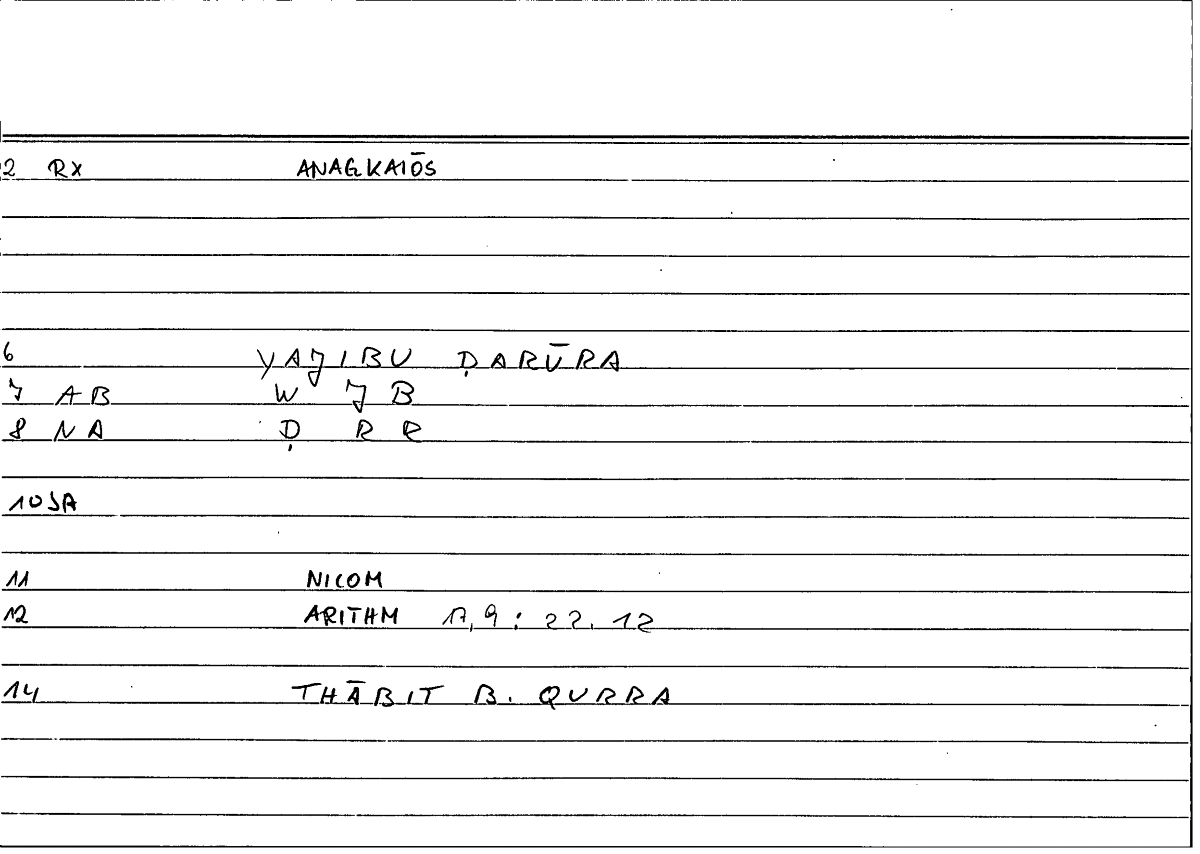 2 RX ANAGKAIŌS
6 YAJIBU ḌARŪRA
7 AB W J B
8 NA Ḍ R R
10 SA
11 NICOM
12 ARITHM 17,9 : 22. 12
14 THĀBIT B. QURRA